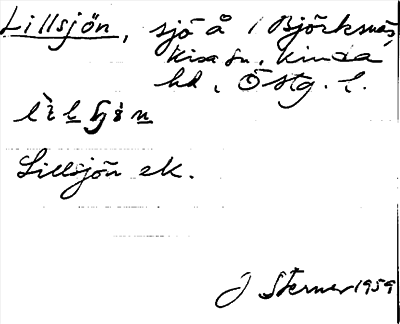 Lillsjön, sjö å Björksnäs,
Kisa sn, Kinda
hd, Östg. l.
Lillsjön ek.
J Sterner 1959